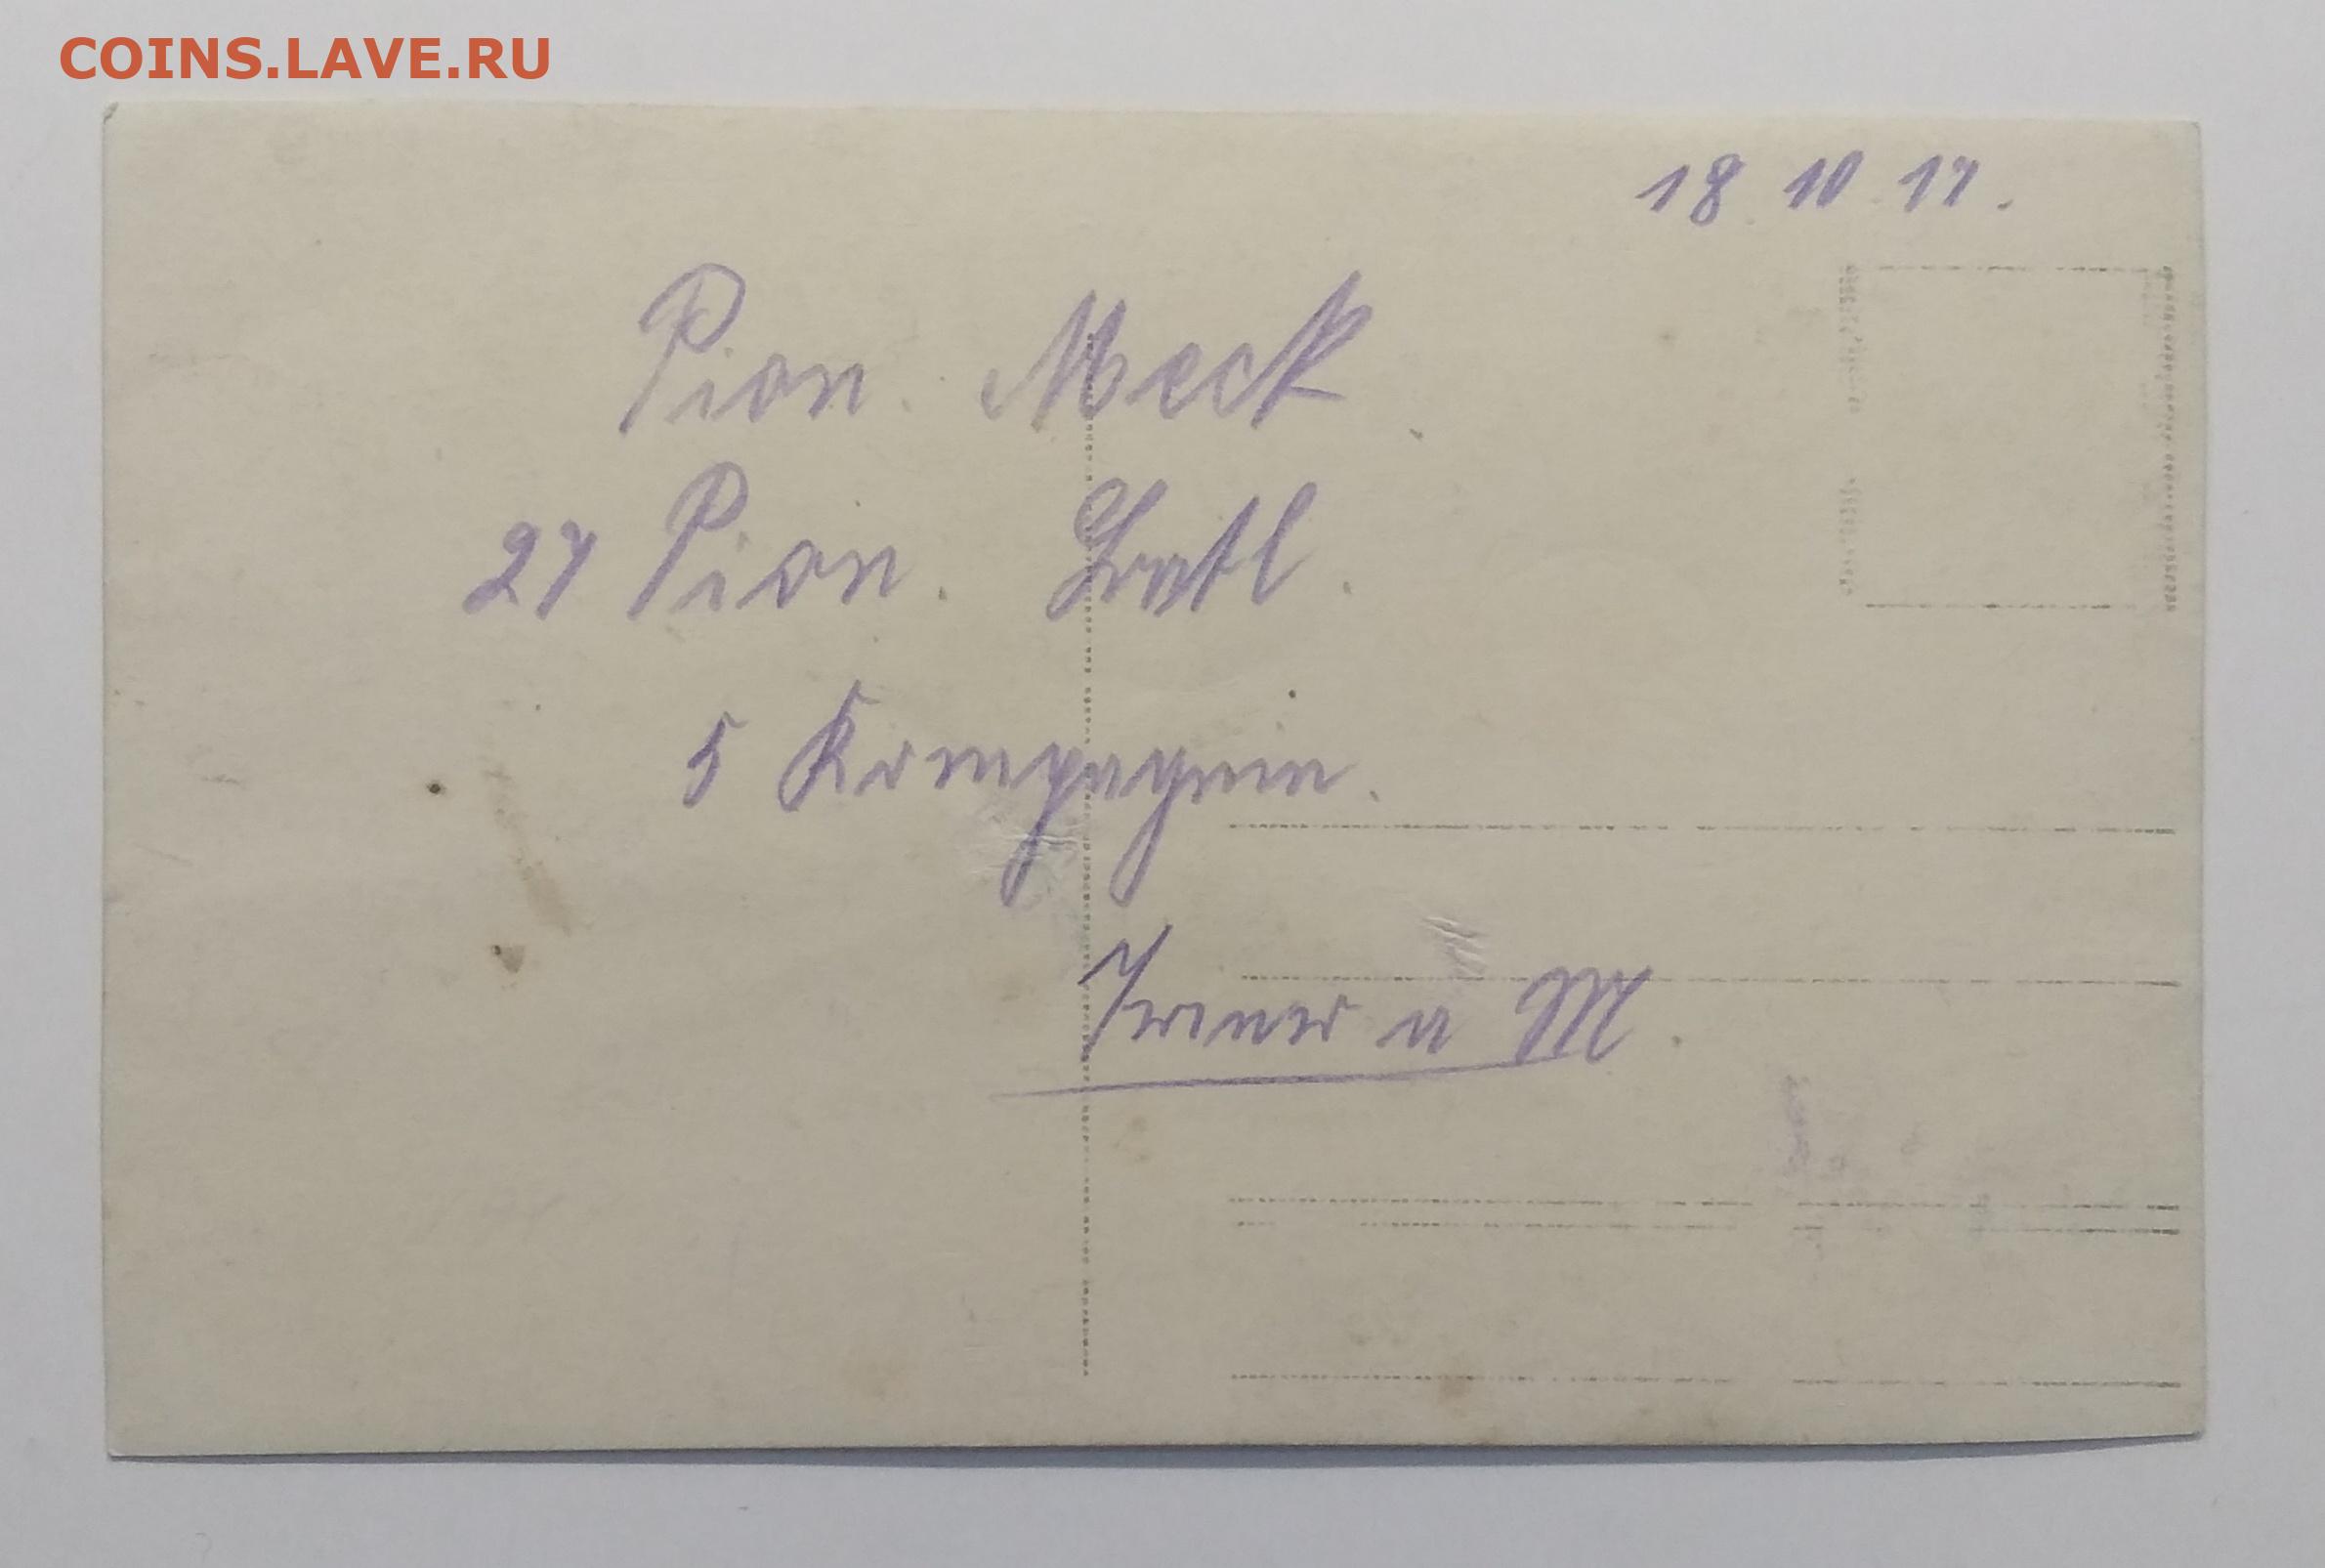 COINS.LAVE.RU
18. 10. 17.
Pion. Meck.
27 Pion. Batl.
5 Kompagnie.
a M.